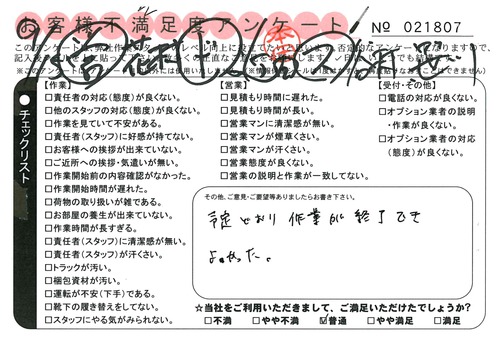 お客様不満足度アンケート
№ 021807
チェックリスト
【作業】
□責任者の対応(態度)が良くない。
□他のスタッフの対応(態度)が良くない。
□作業を見ていて不安がある。
□責任者(スタッフ)に好感が持てない。
□お客様への挨拶が出来ていない。
□ご近所への挨拶・気遣いが無い。
□作業開始前の内容確認がなかった。
□作業開始時間が遅れた。
□荷物の取り扱いが雑である。
□お部屋の養生が出来ていない。
□作業時間が長すぎる。
□責任者(スタッフ)に清潔感が無い。
□責任者(スタッフ)が汗くさい。
□トラックが汚い。
□梱包資材が汚い。
□運転が不安(下手)である。
□靴下の履き替えをしてない。
□スタッフにやる気がみられない。
【営業】
□見積もり時間に遅れた。
□見積もり時間が長い。
□営業マンに清潔感が無い。
□営業マンが煙草くさい。
□営業マンが汗くさい。
□営業態度が良くない。
□営業の説明と作業が一致してない。
【受付・その他】
□電話の対応が良くない。
□オプション業者の説明
・作業が良くない。
□オプション業者の対応
(態度)が良くない。
その他、ご意見・ご要望等ありましたらお書き下さい。
予定どおり 作業が終了でき
よかった。
☆当社をご利用いただきまして、ご満足いただけたでしょうか?
□不満 □やや不満 ☑普通 □やや満足 □満足